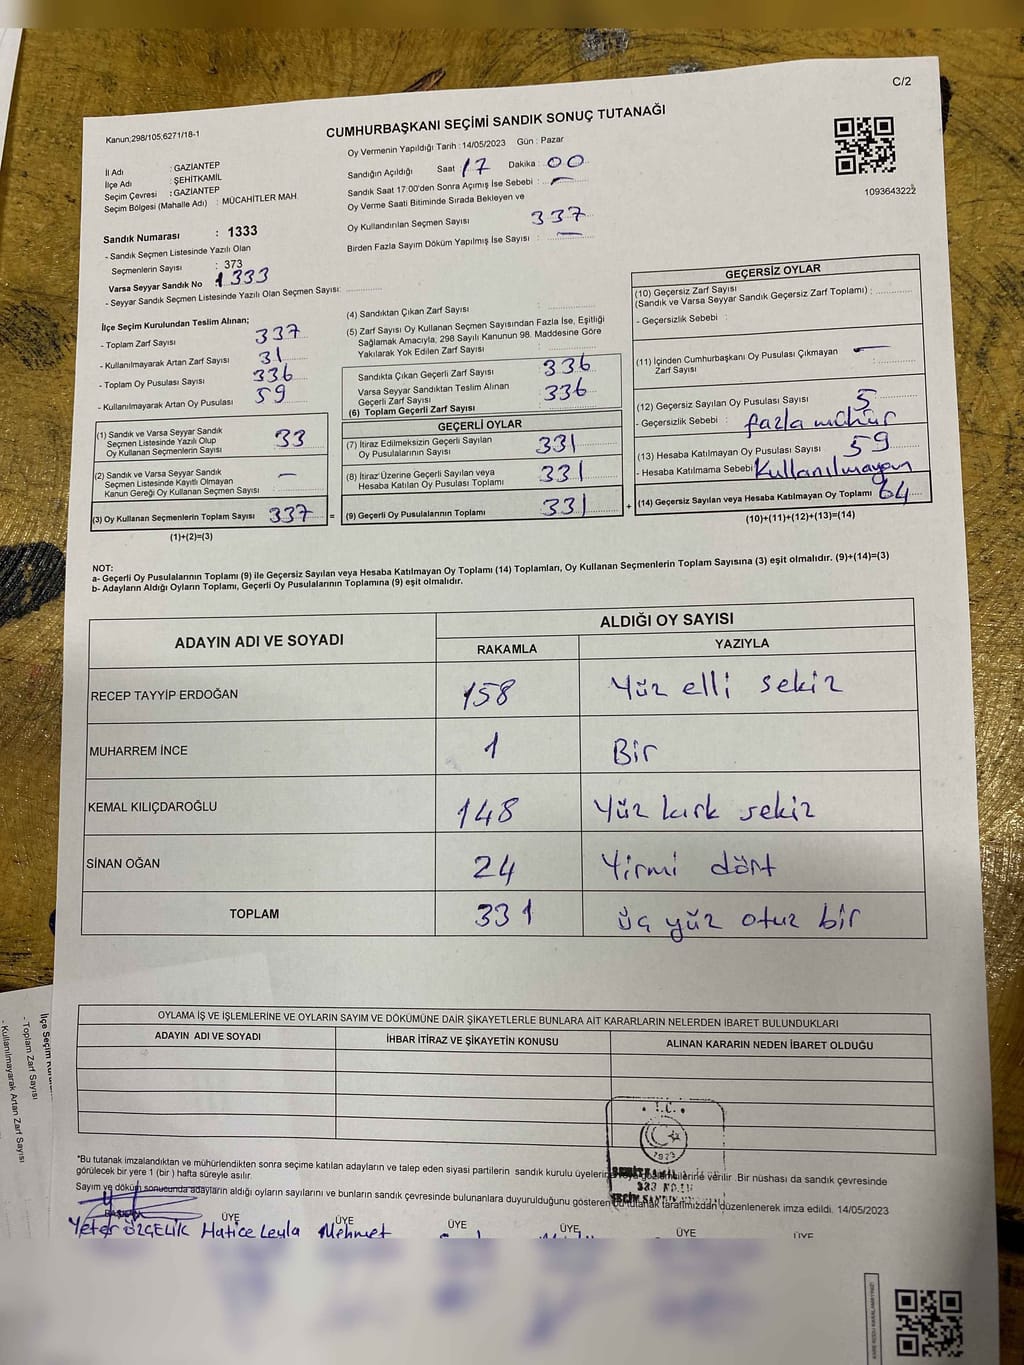 C/2
Kanun;298/105;6271/18-1
CUMHURBAŞKANI SEÇİMİ SANDIK SONUÇ TUTANAĞI
İl Adı : GAZIANTEP
İlçe Adı : ŞEHİTKAMİL
Seçim Çevresi : GAZIANTEP
Seçim Bölgesi (Mahalle Adı) : MÜCAHİTLER MAH
Oy Vermenin Yapıldığı Tarih : 14/05/2023 Gün : Pazar
Sandığın Açıldığı Saat : 17 Dakika : 00
Sandık Saat 17:00'den Sonra Açımış İse Sebebi : —
Oy Verme Saati Bitiminde Sırada Bekleyen ve
Oy Kullandırılan Seçmen Sayısı 337
Birden Fazla Sayım Döküm Yapılmış İse Sayısı : —
1093643222
Sandık Numarası : 1333
- Sandık Seçmen Listesinde Yazılı Olan
Seçmenlerin Sayısı : 373
Varsa Seyyar Sandık No 1333
- Seyyar Sandık Seçmen Listesinde Yazılı Olan Seçmen Sayısı:
İlçe Seçim Kurulundan Teslim Alınan;
- Toplam Zarf Sayısı 337
- Kullanılmayarak Artan Zarf Sayısı 31
- Toplam Oy Pusulası Sayısı 336
- Kullanılmayarak Artan Oy Pusulası 59
(1) Sandık ve Varsa Seyyar Sandık
Seçmen Listesinde Yazılı Olup
Oy Kullanan Seçmenlerin Sayısı 33
(2) Sandık ve Varsa Seyyar Sandık
Seçmen Listesinde Kayıtlı Olmayan
Kanun Gereği Oy Kullanan Seçmen Sayısı —
(3) Oy Kullanan Seçmenlerin Toplam Sayısı 337 =
(1)+(2)=(3)
(4) Sandıktan Çıkan Zarf Sayısı :
(5) Zarf Sayısı Oy Kullanan Seçmen Sayısından Fazla İse, Eşitliği
Sağlamak Amacıyla, 298 Sayılı Kanunun 98. Maddesine Göre
Yakılarak Yok Edilen Zarf Sayısı :
Sandıkta Çıkan Geçerli Zarf Sayısı 336
Varsa Seyyar Sandıktan Teslim Alınan
Geçerli Zarf Sayısı 336
(6) Toplam Geçerli Zarf Sayısı
GEÇERLİ OYLAR
(7) İtiraz Edilmeksizin Geçerli Sayılan
Oy Pusulasının Sayısı 331
(8) İtiraz Üzerine Geçerli Sayılan veya
Hesaba Katılan Oy Pusulası Toplamı 331
(9) Geçerli Oy Pusulalarının Toplamı 331 +
GEÇERSİZ OYLAR
(10) Geçersiz Zarf Sayısı
(Sandık ve Varsa Seyyar Sandık Geçersiz Zarf Toplamı) :
- Geçersizlik Sebebi :
(11) İçinden Cumhurbaşkanı Oy Pusulası Çıkmayan —
Zarf Sayısı :
(12) Geçersiz Sayılan Oy Pusulası Sayısı 5
- Geçersizlik Sebebi : fazla mühür
(13) Hesaba Katılmayan Oy Pusulası Sayısı 59
- Hesaba Katılmama Sebebi Kullanılmayan
(14) Geçersiz Sayılan veya Hesaba Katılmayan Oy Toplamı 64
(10)+(11)+(12)+(13)=(14)
NOT:
a- Geçerli Oy Pusulalarının Toplamı (9) ile Geçersiz Sayılan veya Hesaba Katılmayan Oy Toplamı (14) Toplamları, Oy Kullanan Seçmenlerin Toplam Sayısına (3) eşit olmalıdır. (9)+(14)=(3)
b- Adayların Aldığı Oyların Toplamı, Geçerli Oy Pusulalarının Toplamına (9) eşit olmalıdır.
ADAYIN ADI VE SOYADI ALDIĞI OY SAYISI
RAKAMLA YAZIYLA
RECEP TAYYİP ERDOĞAN 158 Yüz elli sekiz
MUHARREM İNCE 1 Bir
KEMAL KILIÇDAROĞLU 148 Yüz kırk sekiz
SİNAN OĞAN 24 Yirmi dört
TOPLAM 331 üç yüz otuz bir
OYLAMA İŞ VE İŞLEMLERİNE VE OYLARIN SAYIM VE DÖKÜMÜNE DAİR ŞİKAYETLERLE BUNLARA AİT KARARLARIN NELERDEN İBARET BULUNDUKLARI
ADAYIN ADI VE SOYADI İHBAR İTİRAZ VE ŞİKAYETİN KONUSU ALINAN KARARIN NEDEN İBARET OLDUĞU
T.C.
1923
*Bu tutanak imzalandıktan ve mühürlendikten sonra seçime katılan adayların ve talep eden siyasi partilerin sandık kurulu üyelerine verilir .Bir nüshası da sandık çevresinde
görülecek bir yere 1 (bir ) hafta süreyle asılır.
Sayım ve döküm sonucunda adayların aldığı oyların sayılarını ve bunların sandık çevresinde bulunanlara duyurulduğunu gösteren bu tutanak tarafımızdan düzenlenerek imza edildi. 14/05/2023
BAŞKAN ÜYE ÜYE ÜYE ÜYE ÜYE ÜYE
Yeter ÖZÇELİK Hatice Leyla Mehmet
İlçe Seçim
- Toplam Zarf Sayısı
- Kullanılmayarak Artan Zarf Sayısı